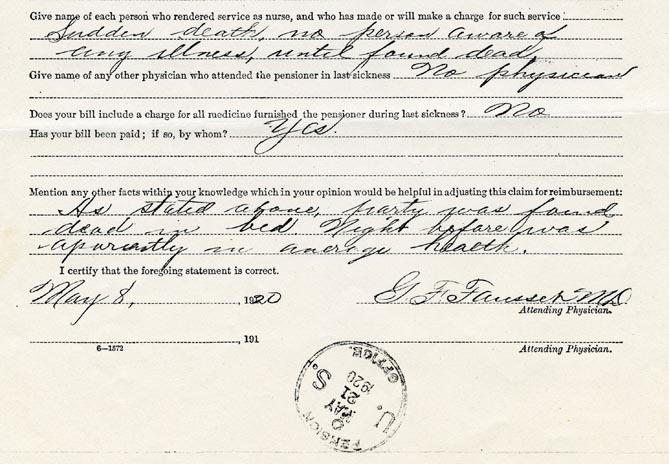 Give name of each person who rendered service as nurse, and who has made or will make a charge for such service:
Sudden death, no person aware of
any illness, until found dead,
Give name of any other physician who attended the pensioner in last sickness No physician
Does your bill include a charge for all medicine furnished the pensioner during last sickness? No
Has your bill been paid; if so, by whom? Yes.
Mention any other facts within your knowledge which in your opinion would be helpful in adjusting this claim for reimbursement:
As stated above, party was found
dead in bed Night before was
aparently in average health.
I certify that the foregoing statement is correct.
May 8, , 1920 G F M.D.
Attending Physician.
, 191
6—1572 Attending Physician.
U. S.
PENSION
MAY
21
1920
OFFICE.